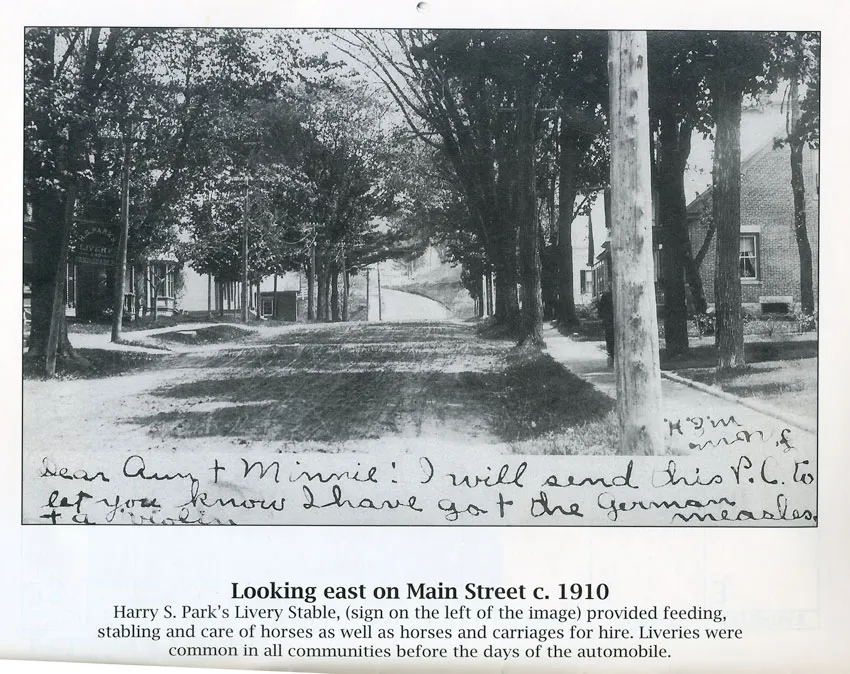 LIVERY
Dear Aunt + Minnie! I will send this P.C. to
let you know I have got the German
measles.
+ a violin
Looking east on Main Street c. 1910
Harry S. Park's Livery Stable, (sign on the left of the image) provided feeding,
stabling and care of horses as well as horses and carriages for hire. Liveries were
common in all communities before the days of the automobile.